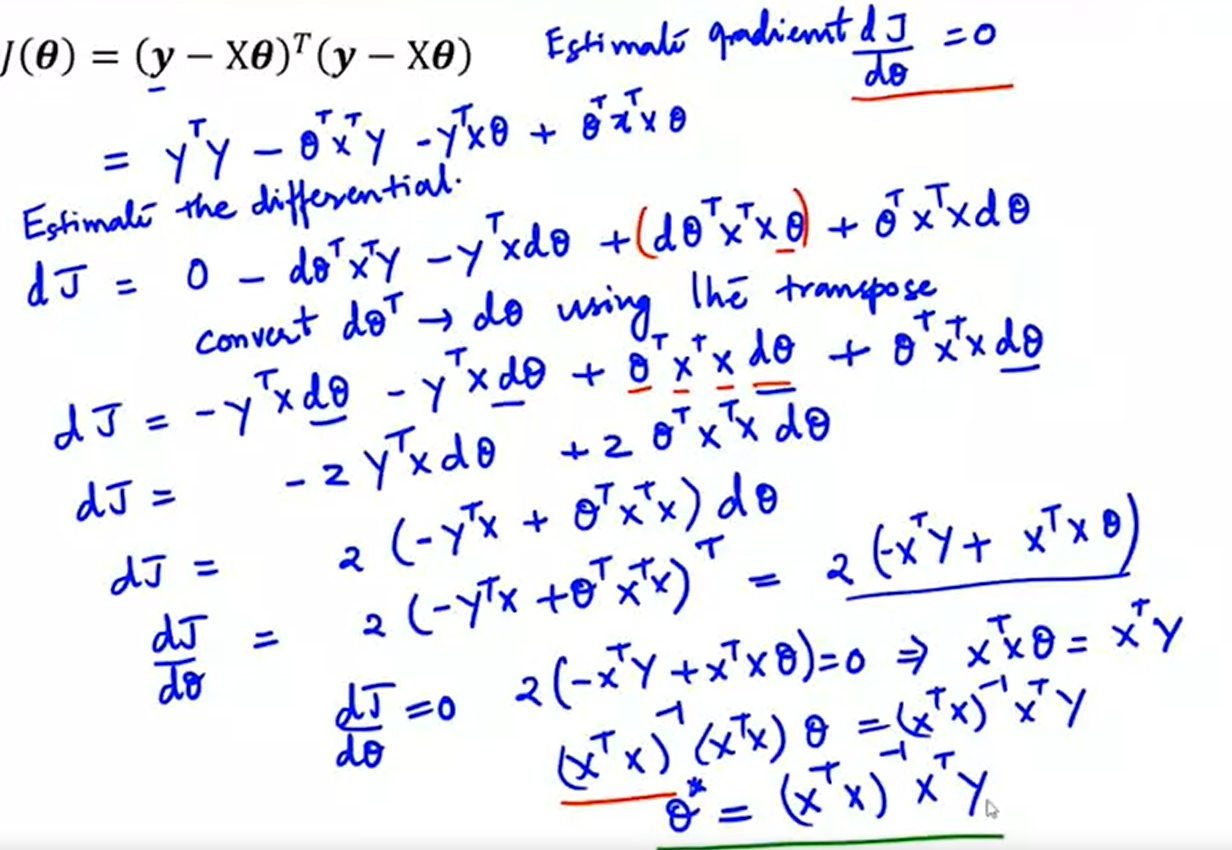 J(θ) = (y − Xθ)ᵀ(y − Xθ) Estimate gradient dJ/dθ = 0
= yᵀy − θᵀxᵀy − yᵀxθ + θᵀxᵀxθ
Estimate the differential.
dJ = 0 − dθᵀxᵀy − yᵀxdθ + (dθᵀxᵀxθ) + θᵀxᵀxdθ
convert dθᵀ → dθ using the transpose
dJ = −yᵀxdθ − yᵀxdθ + θᵀxᵀx dθ + θᵀxᵀxdθ
dJ = −2yᵀxdθ + 2θᵀxᵀxdθ
dJ = 2(−yᵀx + θᵀxᵀx)dθ
dJ/dθ = 2(−yᵀx + θᵀxᵀx)ᵀ = 2(−xᵀy + xᵀxθ)
dJ/dθ = 0 2(−xᵀy + xᵀxθ) = 0 ⇒ xᵀxθ = xᵀy
(xᵀx)⁻¹(xᵀx)θ = (xᵀx)⁻¹xᵀy
θ* = (xᵀx)⁻¹xᵀy